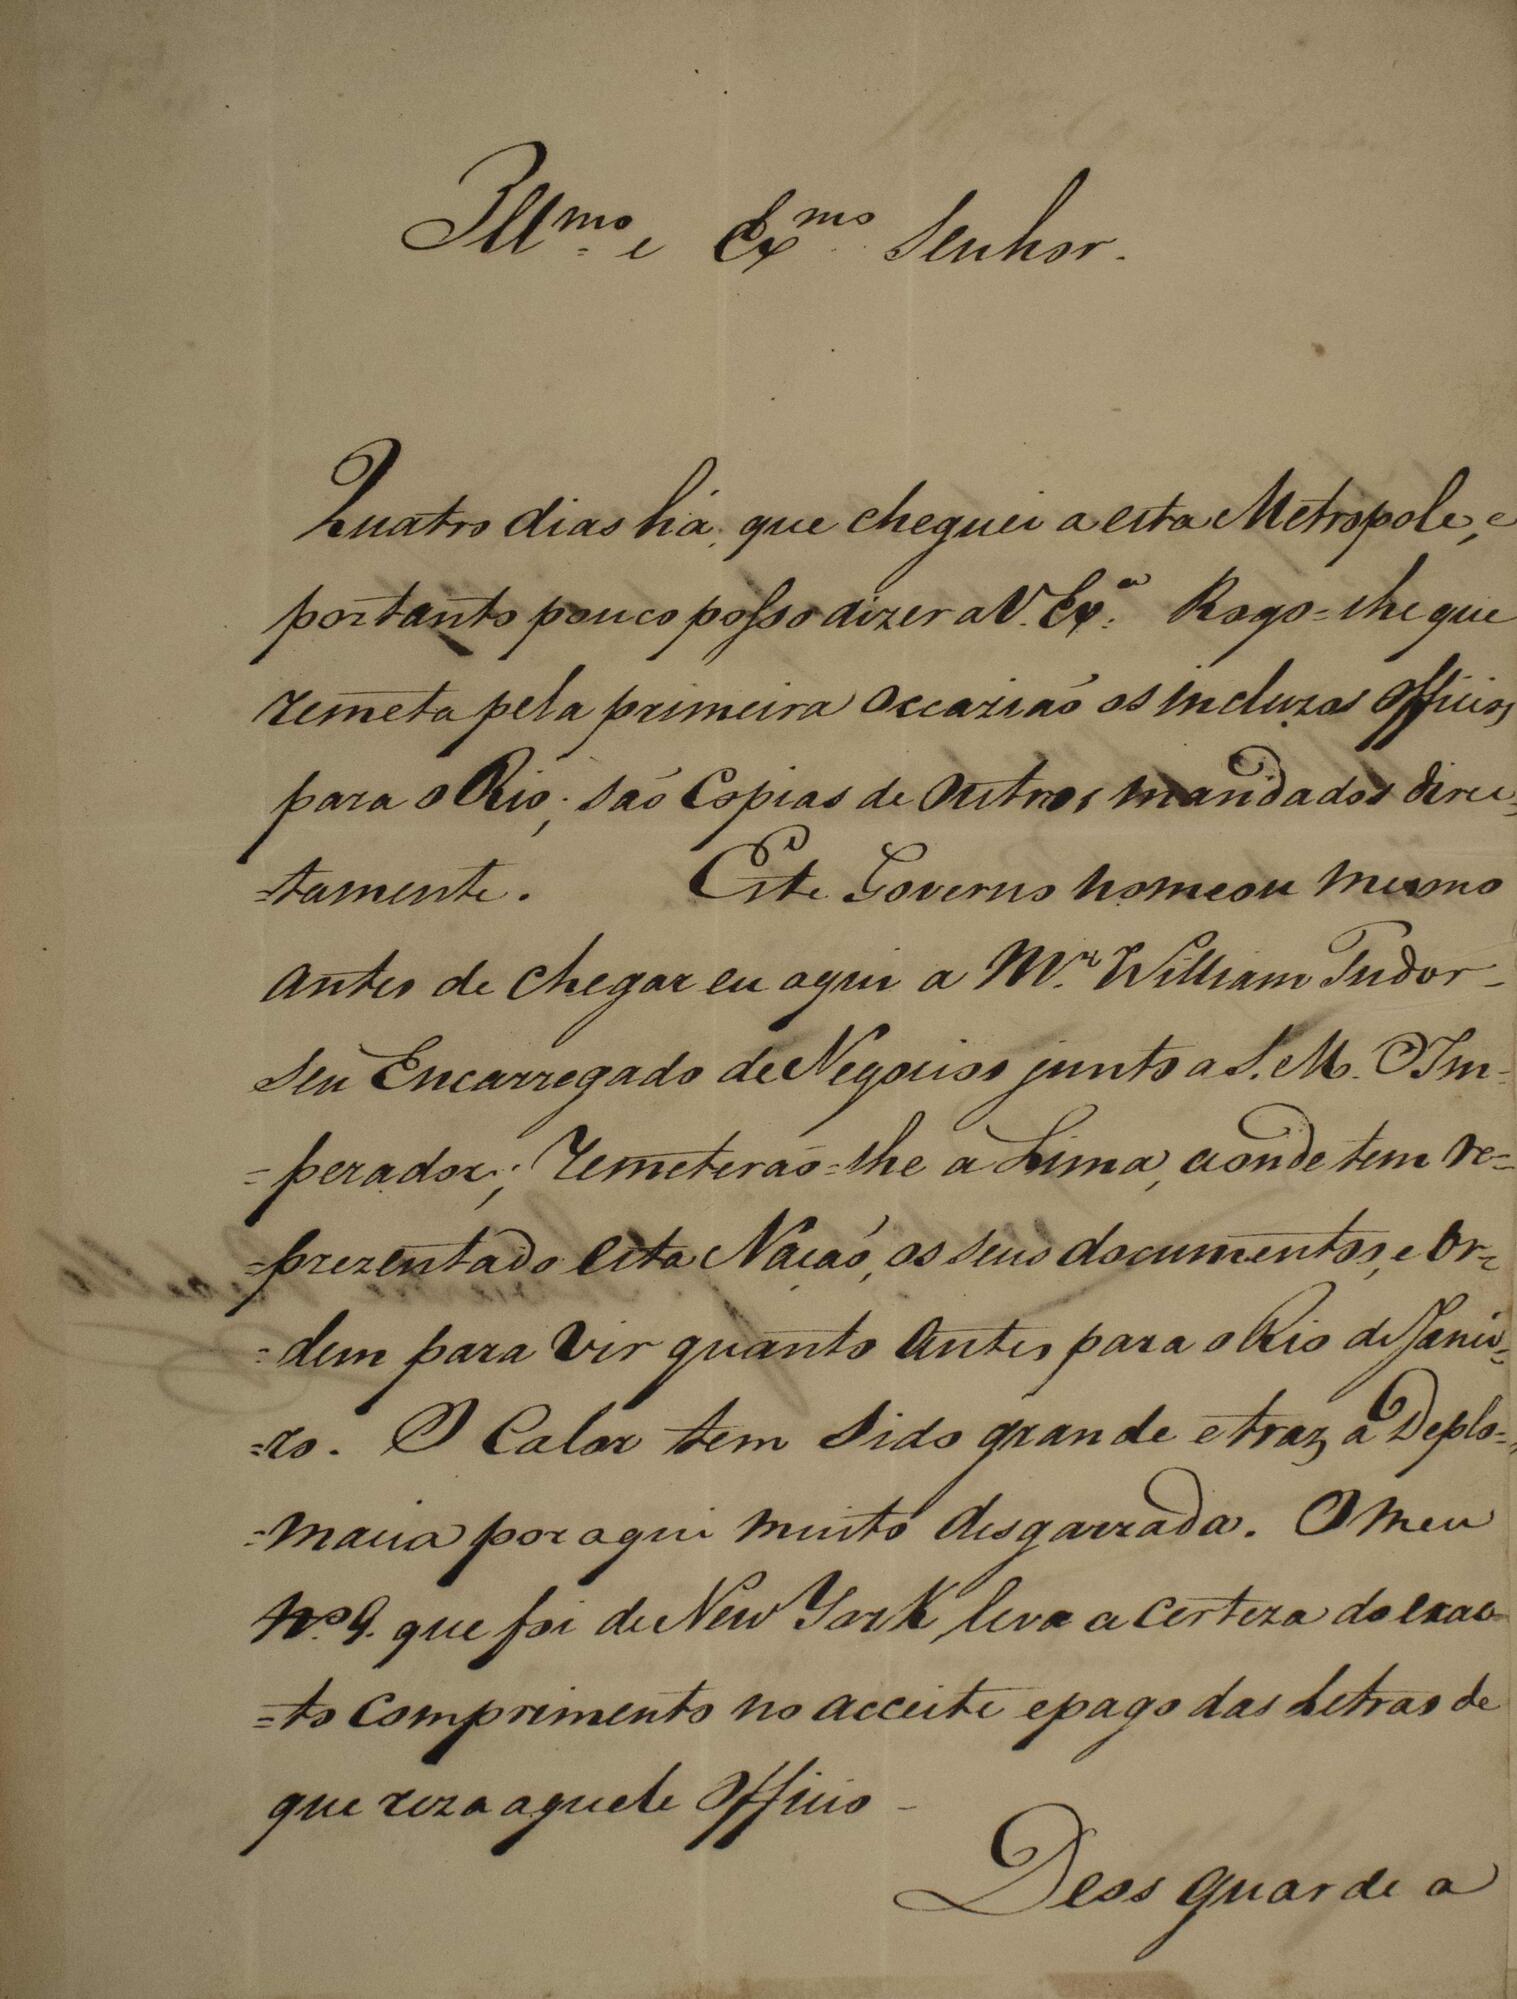 Illmo. e Exmo. Senhor.
Quatro dias há, que cheguei a esta Metropole, e
portanto pouco posso dizer a V. Exa. Rogo-lhe que
remeta pela primeira occazião os incluzos officios
para o Rio; são Copias de outros mandados direc-
=tamente. Este Governo nomeou mesmo
antes de chegar eu aqui a Mr. William Tudor
seu Encarregado de Negocios junto a S. M. O Im-
=perador; remeterão-lhe a Lima, aonde tem re-
=prezentado esta Nação, os seus documentos, e or-
=dem para vir quanto antes para o Rio de Janei-
=ro. O Calor tem sido grande e traz a Deplo-
=macia por aqui muito desgarrada. O meu
No. 9. que foi de New York, leva a certeza do exac-
=to comprimento no acceite e pago das Letras de
que reza aquele Officio -
Deos guarde a